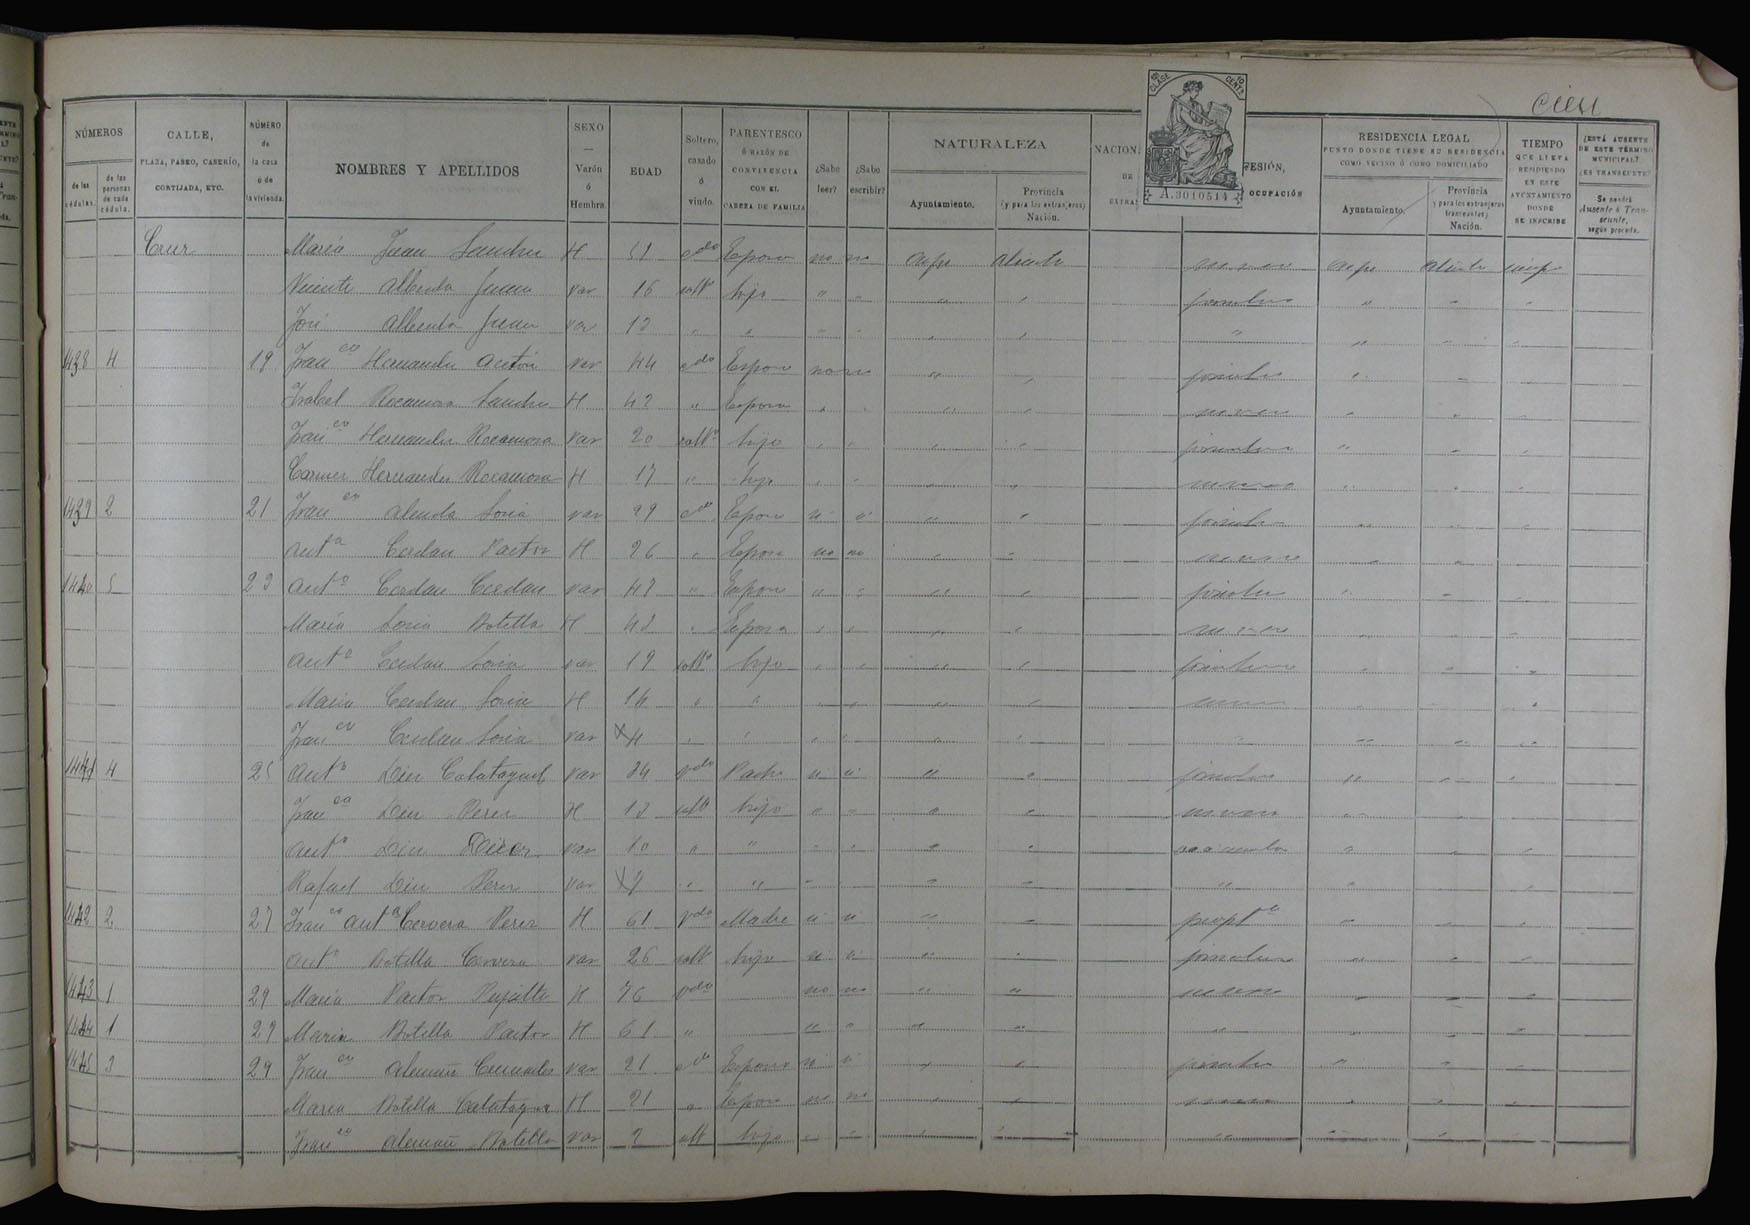 Cien
NÚMEROS
de las cédulas.
de las personas de cada cédula.
CALLE, PLAZA, PASEO, CASERÍO, CORTIJADA, ETC.
NÚMERO de la casa ó de la vivienda.
NOMBRES Y APELLIDOS
SEXO — Varón ó Hembra.
EDAD
Soltero, casado ó viudo.
PARENTESCO Ó RAZÓN DE CONVIVENCIA CON EL CABEZA DE FAMILIA
¿Sabe leer?
¿Sabe escribir?
NATURALEZA
Ayuntamiento.
Provincia (y para los extranjeros) Nación.
NACION.
DE
EXTRAN
FESIÓN,
OCUPACIÓN
RESIDENCIA LEGAL
PUNTO DONDE TIENE SU RESIDENCIA COMO VECINO Ó COMO DOMICILIADO
Ayuntamiento.
Provincia (y para los extranjeros transeuntes) Nación.
TIEMPO QUE LLEVA RESIDIENDO EN ESTE AYUNTAMIENTO DONDE SE INSCRIBE
¿ESTÁ AUSENTE DE ESTE TÉRMINO MUNICIPAL? ¿ES TRANSEUNTE?
Se pondrá Ausente ó Transeunte, según proceda.
CLASE 10 CENTS
A.3010514
Cruz María Juan Sanchez H 51 cdo Esposa no no Aspe Alicante Aspe Alicante siempre
Vicente Alberola Juan var 16 soltº hijo " " " " jornalero " " "
José Alberola Juan var 13 " " " " " " " " " "
1438 4 19 Franco Hernandez Acetón var 44 cdo Esposo no no " " jornalero " " "
Isabel Rocamora Sanchez H 42 " Esposa " " " " " " "
Franco Hernandez Rocamora var 20 soltº hijo " " " " jornalero " " "
Carmen Hernandez Rocamora H 17 " hija " " " " " " "
1439 2 21 Franco Alenda Soria var 29 cdo Esposo si si " " jornalero " " "
Anta Cerdan Pastor H 26 " Esposa no no " " " " "
1440 5 23 Antº Cerdan Cerdan var 47 " Esposo " " " " jornalero " " "
María Soria Botella H 43 " Esposa " " " " " " "
Antº Cerdan Soria var 19 soltº hijo " " " " jornalero " " "
Maria Cerdan Soria H 14 " " " " " " " " "
Franco Cerdan Soria var 4 " " " " " " " " " "
1441 4 25 Antº Diez Calatayud var 34 Vdo Padre si si " " jornalero " " "
Franca Diez Perez H 13 solt hijo " " " " " " "
Antº Diez Diez var 10 " " " " " " " " "
Rafael Diez Perez var 7 " " " " " " " "
1442 2 27 Franca Anta Cervera Perez H 61 Vda Madre si si " " propta " " "
Antº Botella Cervera var 26 solt hijo si si " " jornalero " " "
1443 1 29 María Pastor H 76 Vda no no " " " " "
1444 1 29 Maria Botella Pastor H 61 " " " " " " " " "
1445 3 29 Franco Alemañ var 21 cdo Esposo si si " " jornalero " " "
Maria Botella Calatayud H 21 " Esposa no no " " " " "
Franco Alemañ Botella var 2 solt hijo " " " " " " " "